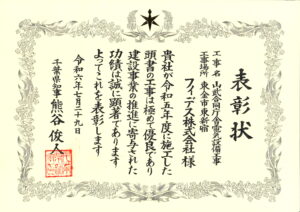 表彰状
工事名 山武合同庁舎電気設備工事
工事場所 東金市東新宿
フィデス株式会社 様
貴社が令和五年度に施工した
頭書の工事は極めて優良であり
建設事業の推進に寄与された
功績は誠に顕著であります
よってこれを表彰します
令和六年七月二十九日
千葉県知事 熊谷俊人